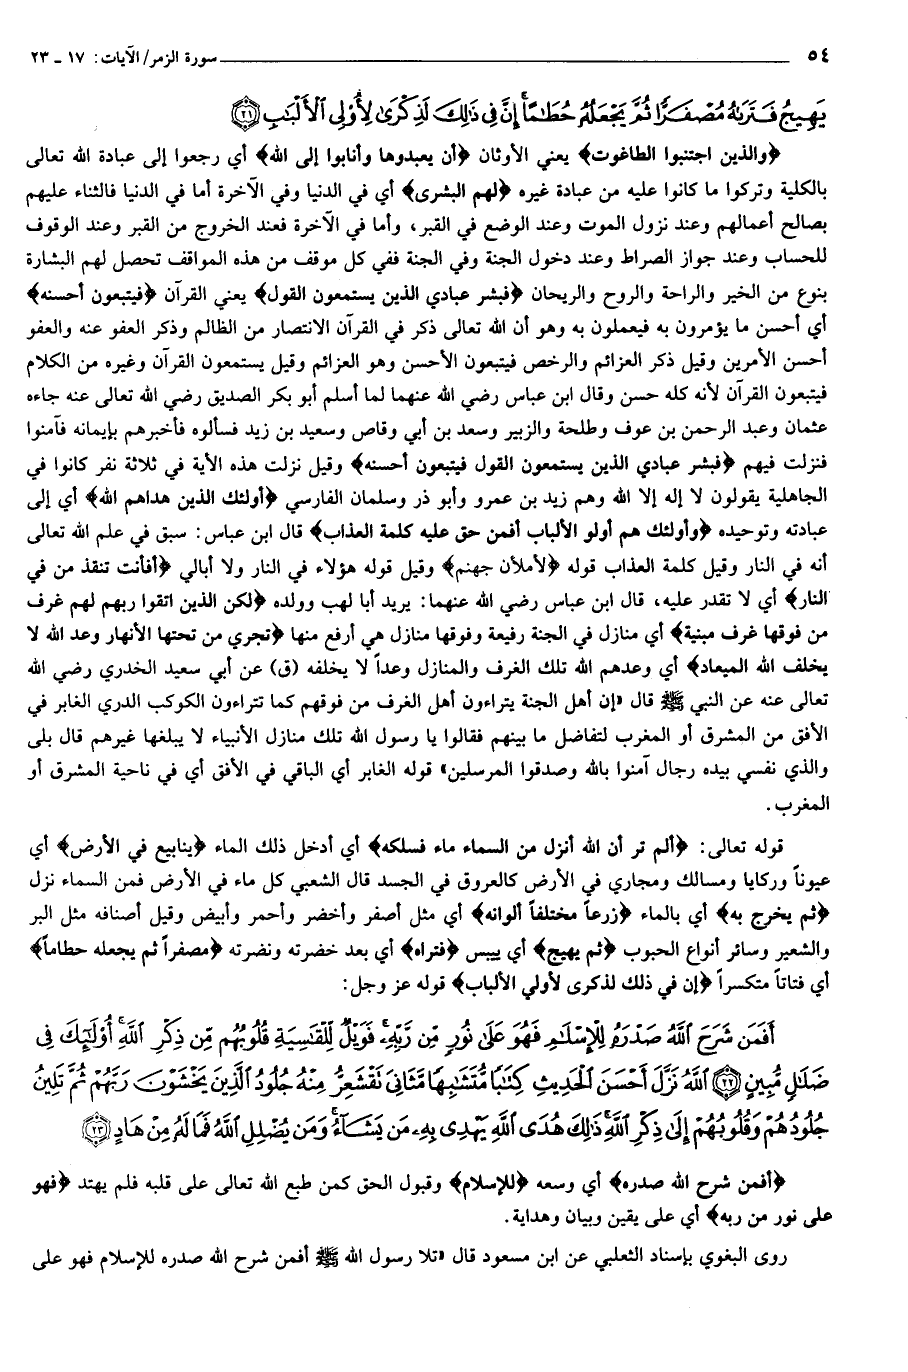 ٥٤ سورة الزمر/ الآيات: ١٧ ـ ٢٣
يَهِيجُ فَتَرَىٰهُ مُصْفَرًّا ثُمَّ يَجْعَلُهُۥ حُطَٰمًا ۚ إِنَّ فِى ذَٰلِكَ لَذِكْرَىٰ لِأُو۟لِى ٱلْأَلْبَٰبِ ٢١
﴿والذين اجتنبوا الطاغوت﴾ يعني الأوثان ﴿أن يعبدوها وأنابوا إلى الله﴾ أي رجعوا إلى عبادة الله تعالى
بالكلية وتركوا ما كانوا عليه من عبادة غيره ﴿لهم البشرى﴾ أي في الدنيا وفي الآخرة أما في الدنيا فالثناء عليهم
بصالح أعمالهم وعند نزول الموت وعند الوضع في القبر، وأما في الآخرة فعند الخروج من القبر وعند الوقوف
للحساب وعند جواز الصراط وعند دخول الجنة وفي الجنة ففي كل موقف من هذه المواقف تحصل لهم البشارة
بنوع من الخير والراحة والروح والريحان ﴿فبشر عبادي الذين يستمعون القول﴾ يعني القرآن ﴿فيتبعون أحسنه﴾
أي أحسن ما يؤمرون به فيعملون به وهو أن الله تعالى ذكر في القرآن الانتصار من الظالم وذكر العفو عنه والعفو
أحسن الأمرين وقيل ذكر العزائم والرخص فيتبعون الأحسن وهو العزائم وقيل يستمعون القرآن وغيره من الكلام
فيتبعون القرآن لأنه كله حسن وقال ابن عباس رضي الله عنهما لما أسلم أبو بكر الصديق رضي الله تعالى عنه جاءه
عثمان وعبد الرحمن بن عوف وطلحة والزبير وسعد بن أبي وقاص وسعيد بن زيد فسألوه فأخبرهم بإيمانه فآمنوا
فنزلت فيهم ﴿فبشر عبادي الذين يستمعون القول فيتبعون أحسنه﴾ وقيل نزلت هذه الأية في ثلاثة نفر كانوا في
الجاهلية يقولون لا إله إلا الله وهم زيد بن عمرو وأبو ذر وسلمان الفارسي ﴿أولئك الذين هداهم الله﴾ أي إلى
عبادته وتوحيده ﴿وأولئك هم أولو الألباب أفمن حق عليه كلمة العذاب﴾ قال ابن عباس: سبق في علم الله تعالى
أنه في النار وقيل كلمة العذاب قوله ﴿لأملأن جهنم﴾ وقيل قوله هؤلاء في النار ولا أبالي ﴿أفأنت تنقذ من في
النار﴾ أي لا تقدر عليه، قال ابن عباس رضي الله عنهما: يريد أبا لهب وولده ﴿لكن الذين اتقوا ربهم لهم غرف
من فوقها غرف مبنية﴾ أي منازل في الجنة رفيعة وفوقها منازل هي أرفع منها ﴿تجري من تحتها الأنهار وعد الله لا
يخلف الله الميعاد﴾ أي وعدهم الله تلك الغرف والمنازل وعداً لا يخلفه (ق) عن أبي سعيد الخدري رضي الله
تعالى عنه عن النبي ﷺ قال «إن أهل الجنة يتراءون أهل الغرف من فوقهم كما تتراءون الكوكب الدري الغابر في
الأفق من المشرق أو المغرب لتفاضل ما بينهم فقالوا يا رسول الله تلك منازل الأنبياء لا يبلغها غيرهم قال بلى
والذي نفسي بيده رجال آمنوا بالله وصدقوا المرسلين» قوله الغابر أي الباقي في الأفق أي في ناحية المشرق أو
المغرب.
قوله تعالى: ﴿ألم تر أن الله أنزل من السماء ماء فسلكه﴾ أي أدخل ذلك الماء ﴿ينابيع في الأرض﴾ أي
عيوناً وركايا ومسالك ومجاري في الأرض كالعروق في الجسد قال الشعبي كل ماء في الأرض فمن السماء نزل
﴿ثم يخرج به﴾ أي بالماء ﴿زرعاً مختلفاً ألوانه﴾ أي مثل أصفر وأخضر وأحمر وأبيض وقيل أصنافه مثل البر
والشعير وسائر أنواع الحبوب ﴿ثم يهيج﴾ أي ييبس ﴿فتراه﴾ أي بعد خضرته ونضرته ﴿مصفراً ثم يجعله حطاماً﴾
أي فتاتاً متكسراً ﴿إن في ذلك لذكرى لأولي الألباب﴾ قوله عز وجل:
أَفَمَن شَرَحَ ٱللَّهُ صَدْرَهُۥ لِلْإِسْلَٰمِ فَهُوَ عَلَىٰ نُورٍ مِّن رَّبِّهِۦ ۚ فَوَيْلٌ لِّلْقَٰسِيَةِ قُلُوبُهُم مِّن ذِكْرِ ٱللَّهِ ۚ أُو۟لَٰٓئِكَ فِى
ضَلَٰلٍ مُّبِينٍ ٢٢ ٱللَّهُ نَزَّلَ أَحْسَنَ ٱلْحَدِيثِ كِتَٰبًا مُّتَشَٰبِهًا مَّثَانِىَ تَقْشَعِرُّ مِنْهُ جُلُودُ ٱلَّذِينَ يَخْشَوْنَ رَبَّهُمْ ثُمَّ تَلِينُ
جُلُودُهُمْ وَقُلُوبُهُمْ إِلَىٰ ذِكْرِ ٱللَّهِ ۚ ذَٰلِكَ هُدَى ٱللَّهِ يَهْدِى بِهِۦ مَن يَشَآءُ ۚ وَمَن يُضْلِلِ ٱللَّهُ فَمَا لَهُۥ مِنْ هَادٍ ٢٣
﴿أفمن شرح الله صدره﴾ أي وسعه ﴿للإسلام﴾ وقبول الحق كمن طبع الله تعالى على قلبه فلم يهتد ﴿فهو
على نور من ربه﴾ أي على يقين وبيان وهداية.
روى البغوي بإسناد الثعلبي عن ابن مسعود قال «تلا رسول الله ﷺ أفمن شرح الله صدره للإسلام فهو على